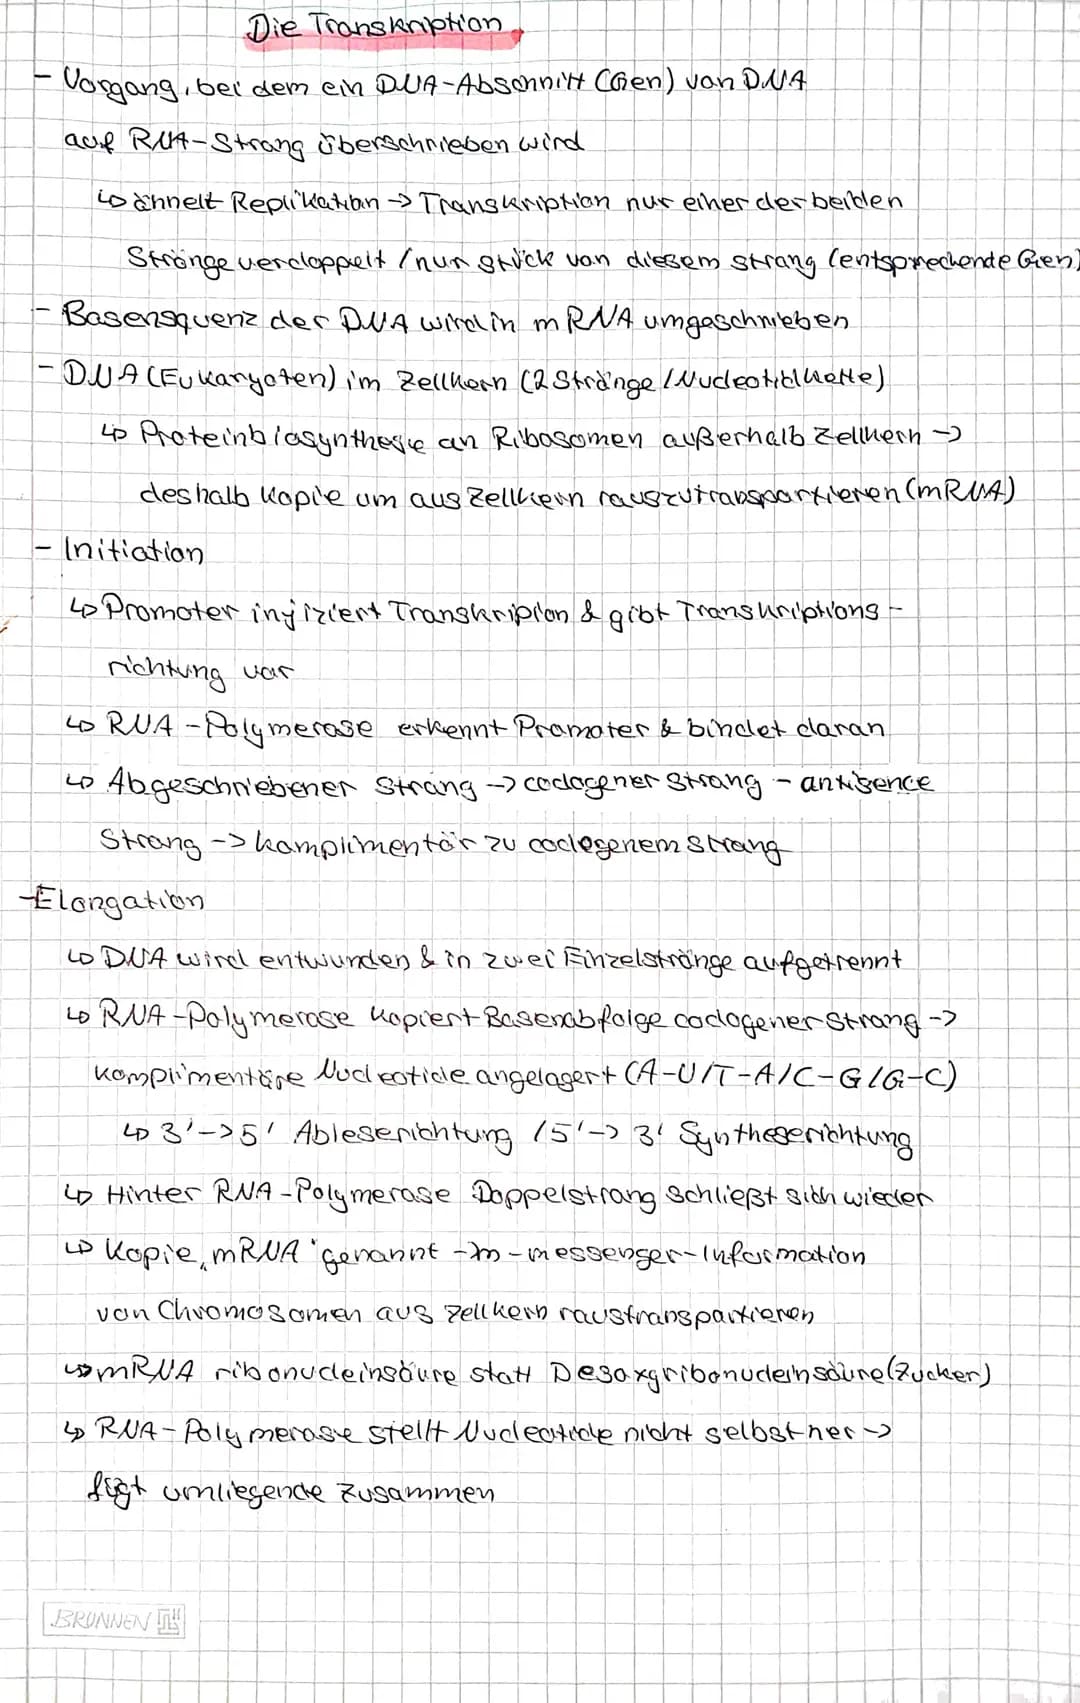 Die Transkription
- Vorgang, bei dem ein DNA-Abschnitt (Gen) von DNA
auf RNA-Strang überschrieben wird
↳ ähnelt Replikation -> Transkription nur einer der beiden
Stränge verdoppelt / nur Stück von diesem Strang (entsprechende Gen)
- Basensquenz der DNA wird in mRNA umgeschrieben
- DNA (Eukaryoten) im Zellkern (2 Stränge / Nucleotidkette)
↳ Proteinbiosynthese an Ribosomen außerhalb Zellkern ->
deshalb Kopie um aus Zellkern rauszutransportieren (mRNA)
- Initiation
↳ Promoter injiziert Transkripion & gibt Transkriptions-
richtung vor
↳ RNA-Polymerase erkennt Promoter & bindet daran
↳ Abgeschriebener Strang -> codogener Strang - antisence
Strang -> komplimentär zu codegenem Strang
- Elongation
↳ DNA wird entwunden & in zwei Einzelstränge aufgetrennt
↳ RNA-Polymerase kopiert Basenabfolge codogener Strang ->
komplimentäre Nucleotide angelagert (A-U/T-A/C-G/G-C)
↳ 3'->5' Ableserichtung / 5'->3' Syntheserichtung
↳ Hinter RNA-Polymerase Doppelstrang schließt sich wieder
↳ Kopie "mRNA" genannt -> m - messenger - Information
von Chromosomen aus Zellkern raustransportieren
↳ mRNA ribonucleinsäure statt Desoxyribonucleinsäure (Zucker)
↳ RNA-Polymerase stellt Nucleotide nicht selbst her ->
fügt umliegende zusammen
BRUNNEN